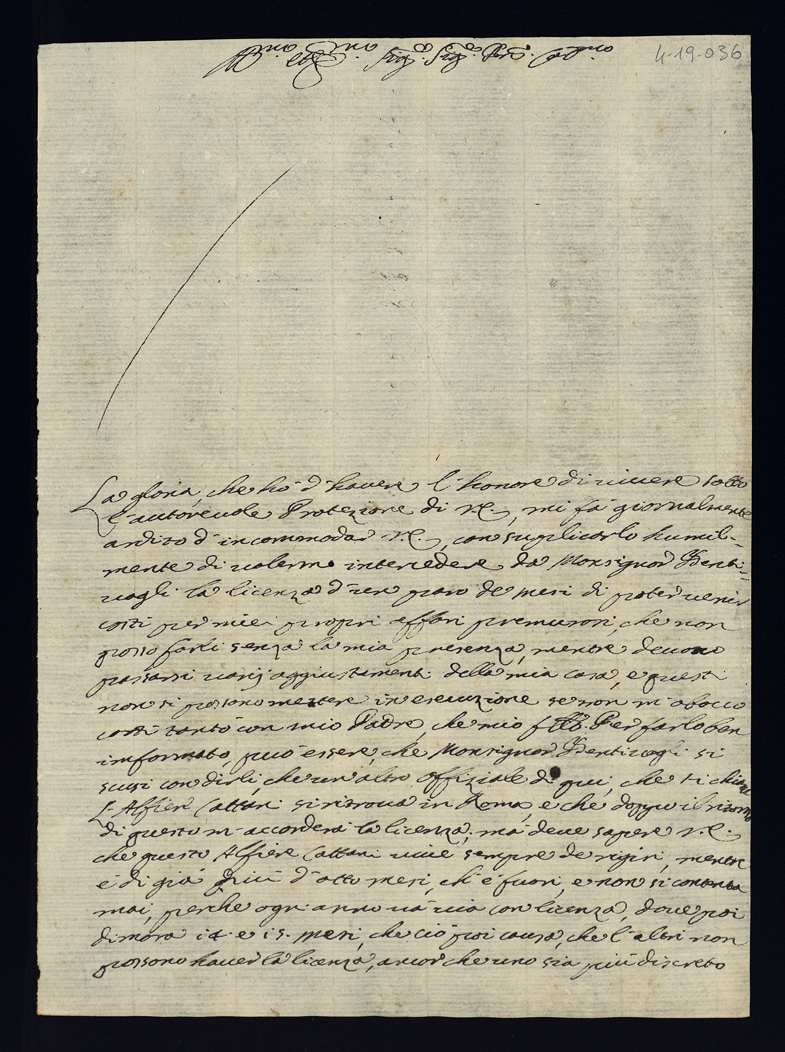 Ill.mo Sig.r Sig.r P.ron Col.mo
4-19-036
La gloria, che hò d'havere l'honore di vivere sotto
l'autorevole Protezione di V.E., mi fà giornalmente
ardito d'incommodar V.E., con suplicarlo humil-
mente di volermi intercedere da Monsignor Benti-
vogli la licenza d'un paro de mesi di poter venir
costì per miei propri affari premurosi, che non
posso farli senza la mia presenza, mentre devono
passarsi varij aggiustamenti della mia casa, e questi
non si possono mettere in esecuzione se non m'abocco
costì tanto con mio Padre, che mio Per farlo ben
informato, può essere, che Monsignor Bentivogli si
scusi con dirli, che un altro Offiziale di qui, che si chiama
l'Alfiere Cattani si ritrova in Roma, e che doppo il ritorno
di questo m'accorderà la licenza; mà deve sapere V.E.
che questo Alfiere Cattani vive sempre de rigiri, mentre
è di già più d'otto mesi, ch'è fuori, e non si contenta
mai, perche ogni anno và via con licenza, dove poi
dimora 14 e 15. mesi, che ciò poi causa, che l'altri non
possono haver la licenza, ancor che uno sia più discreto